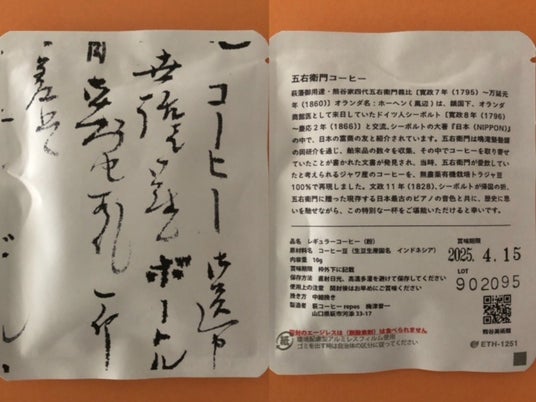 コーヒー
ボートル
五右衛門コーヒー
萩藩御用達・熊谷家四代五右衛門義比［寛政7年（1795）～万延元
年（1860）］オランダ名：ホーヘン（風辺）は、鎖国下、オランダ
商館医として来日していたドイツ人シーボルト［寛政8年（1796）
～慶応2年（1866）］と交流、シーボルトの大著『日本（NIPPON）』
の中で、日本の富商の友と紹介されています。五右衛門は鳴滝塾塾頭
の岡研介を通じ、舶来品の数々を収集、その中でコーヒーを取り寄せ
ていたことが書かれた文書が発見され、当時、五右衛門が愛飲してい
たと考えられるジャワ産のコーヒーを、無農薬有機栽培トラジャ豆
100％で再現しました。文政11年(1828)、シーボルトが帰国の折、
五右衛門に贈った現存する日本最古のピアノの音色と共に、歴史に思
いを馳せながら、この特別な一杯をご堪能いただけると幸いです。
品名 レギュラーコーヒー（粉）
原材料名 コーヒー豆（生豆生産国名 インドネシア）
内容量 10g
賞味期限 枠外下に記載
保存方法 直射日光、高温多湿を避けて保存してください
使用上の注意 開封後はお早めにご賞味ください
挽き方 中細挽き
製造者 萩コーヒー repos
山口県萩市河添 33-17
賞味期限
2025. 4.15
LOT
902095
熊谷美術館
同封のエージレスは（脱酸素剤）は食べられません
紙
環境配慮型アルミレスフィルム使用
ゴミを出す時は自治体の区分に従ってください
ETH-1251